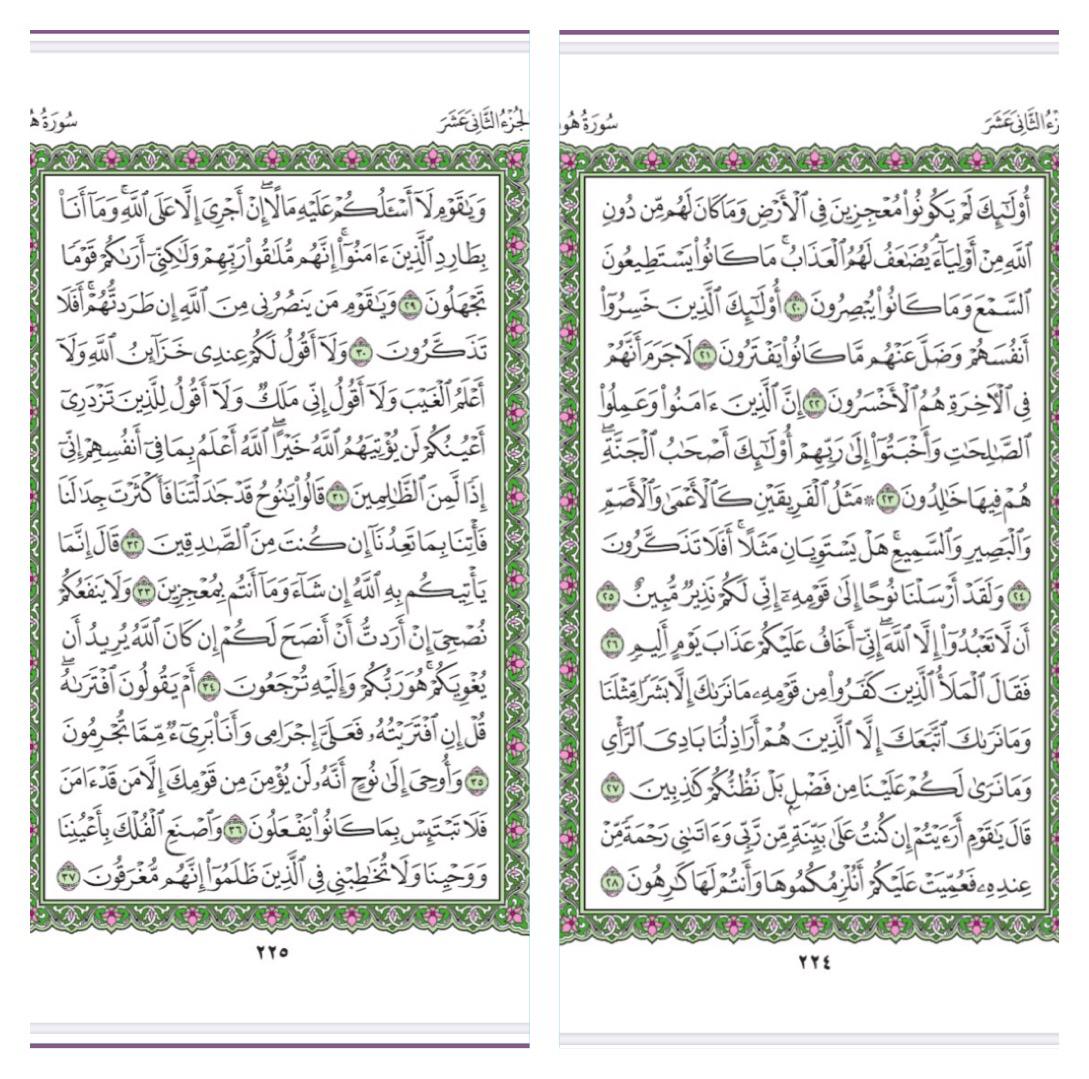 زْءُ الثَّانِيَ عَشَرَ سُورَةُ هُو
أُوْلَٰٓئِكَ لَمْ يَكُونُوا۟ مُعْجِزِينَ فِى ٱلْأَرْضِ وَمَا كَانَ لَهُم مِّن دُونِ
ٱللَّهِ مِنْ أَوْلِيَآءَ ۘ يُضَٰعَفُ لَهُمُ ٱلْعَذَابُ ۚ مَا كَانُوا۟ يَسْتَطِيعُونَ
ٱلسَّمْعَ وَمَا كَانُوا۟ يُبْصِرُونَ ٢٠ أُوْلَٰٓئِكَ ٱلَّذِينَ خَسِرُوٓا۟
أَنفُسَهُمْ وَضَلَّ عَنْهُم مَّا كَانُوا۟ يَفْتَرُونَ ٢١ لَا جَرَمَ أَنَّهُمْ
فِى ٱلْأَخِرَةِ هُمُ ٱلْأَخْسَرُونَ ٢٢ إِنَّ ٱلَّذِينَ ءَامَنُوا۟ وَعَمِلُوا۟
ٱلصَّٰلِحَٰتِ وَأَخْبَتُوٓا۟ إِلَىٰ رَبِّهِمْ أُوْلَٰٓئِكَ أَصْحَٰبُ ٱلْجَنَّةِ ۖ
هُمْ فِيهَا خَٰلِدُونَ ٢٣ ۞ مَثَلُ ٱلْفَرِيقَيْنِ كَٱلْأَعْمَىٰ وَٱلْأَصَمِّ
وَٱلْبَصِيرِ وَٱلسَّمِيعِ ۚ هَلْ يَسْتَوِيَانِ مَثَلًا ۚ أَفَلَا تَذَكَّرُونَ
٢٤ وَلَقَدْ أَرْسَلْنَا نُوحًا إِلَىٰ قَوْمِهِۦٓ إِنِّى لَكُمْ نَذِيرٌ مُّبِينٌ ٢٥
أَن لَّا تَعْبُدُوٓا۟ إِلَّا ٱللَّهَ ۖ إِنِّىٓ أَخَافُ عَلَيْكُمْ عَذَابَ يَوْمٍ أَلِيمٍ ٢٦
فَقَالَ ٱلْمَلَأُ ٱلَّذِينَ كَفَرُوا۟ مِن قَوْمِهِۦ مَا نَرَىٰكَ إِلَّا بَشَرًا مِّثْلَنَا
وَمَا نَرَىٰكَ ٱتَّبَعَكَ إِلَّا ٱلَّذِينَ هُمْ أَرَاذِلُنَا بَادِىَ ٱلرَّأْىِ
وَمَا نَرَىٰ لَكُمْ عَلَيْنَا مِن فَضْلٍۭ بَلْ نَظُنُّكُمْ كَٰذِبِينَ ٢٧
قَالَ يَٰقَوْمِ أَرَءَيْتُمْ إِن كُنتُ عَلَىٰ بَيِّنَةٍ مِّن رَّبِّى وَءَاتَىٰنِى رَحْمَةً مِّنْ
عِندِهِۦ فَعُمِّيَتْ عَلَيْكُمْ أَنُلْزِمُكُمُوهَا وَأَنتُمْ لَهَا كَٰرِهُونَ ٢٨
٢٢٤
لجُزْءُ الثَّانِيَ عَشَرَ سُورَةُ هُ
وَيَٰقَوْمِ لَآ أَسْـَٔلُكُمْ عَلَيْهِ مَالًا ۖ إِنْ أَجْرِىَ إِلَّا عَلَى ٱللَّهِ ۚ وَمَآ أَنَا۠
بِطَارِدِ ٱلَّذِينَ ءَامَنُوٓا۟ ۚ إِنَّهُم مُّلَٰقُوا۟ رَبِّهِمْ وَلَٰكِنِّىٓ أَرَىٰكُمْ قَوْمًا
تَجْهَلُونَ ٢٩ وَيَٰقَوْمِ مَن يَنصُرُنِى مِنَ ٱللَّهِ إِن طَرَدتُّهُمْ ۚ أَفَلَا
تَذَكَّرُونَ ٣٠ وَلَآ أَقُولُ لَكُمْ عِندِى خَزَآئِنُ ٱللَّهِ وَلَآ
أَعْلَمُ ٱلْغَيْبَ وَلَآ أَقُولُ إِنِّى مَلَكٌ وَلَآ أَقُولُ لِلَّذِينَ تَزْدَرِىٓ
أَعْيُنُكُمْ لَن يُؤْتِيَهُمُ ٱللَّهُ خَيْرًا ۖ ٱللَّهُ أَعْلَمُ بِمَا فِىٓ أَنفُسِهِمْ ۖ إِنِّىٓ
إِذًا لَّمِنَ ٱلظَّٰلِمِينَ ٣١ قَالُوا۟ يَٰنُوحُ قَدْ جَٰدَلْتَنَا فَأَكْثَرْتَ جِدَٰلَنَا
فَأْتِنَا بِمَا تَعِدُنَآ إِن كُنتَ مِنَ ٱلصَّٰدِقِينَ ٣٢ قَالَ إِنَّمَا
يَأْتِيكُم بِهِ ٱللَّهُ إِن شَآءَ وَمَآ أَنتُم بِمُعْجِزِينَ ٣٣ وَلَا يَنفَعُكُمْ
نُصْحِىٓ إِنْ أَرَدتُّ أَنْ أَنصَحَ لَكُمْ إِن كَانَ ٱللَّهُ يُرِيدُ أَن
يُغْوِيَكُمْ ۚ هُوَ رَبُّكُمْ وَإِلَيْهِ تُرْجَعُونَ ٣٤ أَمْ يَقُولُونَ ٱفْتَرَىٰهُ ۖ
قُلْ إِنِ ٱفْتَرَيْتُهُۥ فَعَلَىَّ إِجْرَامِى وَأَنَا۠ بَرِىٓءٌ مِّمَّا تُجْرِمُونَ
٣٥ وَأُوحِىَ إِلَىٰ نُوحٍ أَنَّهُۥ لَن يُؤْمِنَ مِن قَوْمِكَ إِلَّا مَن قَدْ ءَامَنَ
فَلَا تَبْتَئِسْ بِمَا كَانُوا۟ يَفْعَلُونَ ٣٦ وَٱصْنَعِ ٱلْفُلْكَ بِأَعْيُنِنَا
وَوَحْيِنَا وَلَا تُخَٰطِبْنِى فِى ٱلَّذِينَ ظَلَمُوٓا۟ ۚ إِنَّهُم مُّغْرَقُونَ ٣٧
٢٢٥